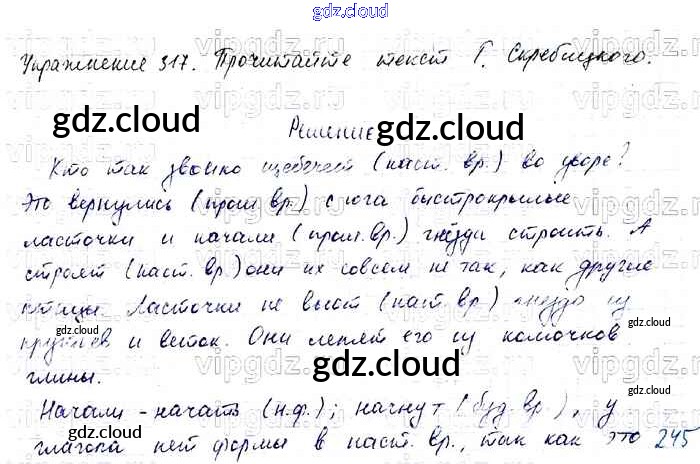 gdz.cloud
Упражнение 317. Прочитайте текст Г. Скребицкого.
gdz.cloud
Решение
gdz.cloud
Кто так звонко щебечет (наст. вр.) во дворе?
Это вернулись (прош. вр.) с юга быстрокрылые
ласточки и начали (прош. вр.) гнёзда строить. А
строят (наст. вр.) они их совсем не так, как другие
птицы. Ласточки не вьют (наст. вр.) гнездо из
gdz.cloud
gdz.cloud
прутьев и веток. Они лепят его из комочков
gdz.cloud
глины.
Начали - начать (н.ф.); начнут (буд. вр.), у
gdz.cloud
gdz.cloud
глагола нет формы в наст. вр., так как это 245